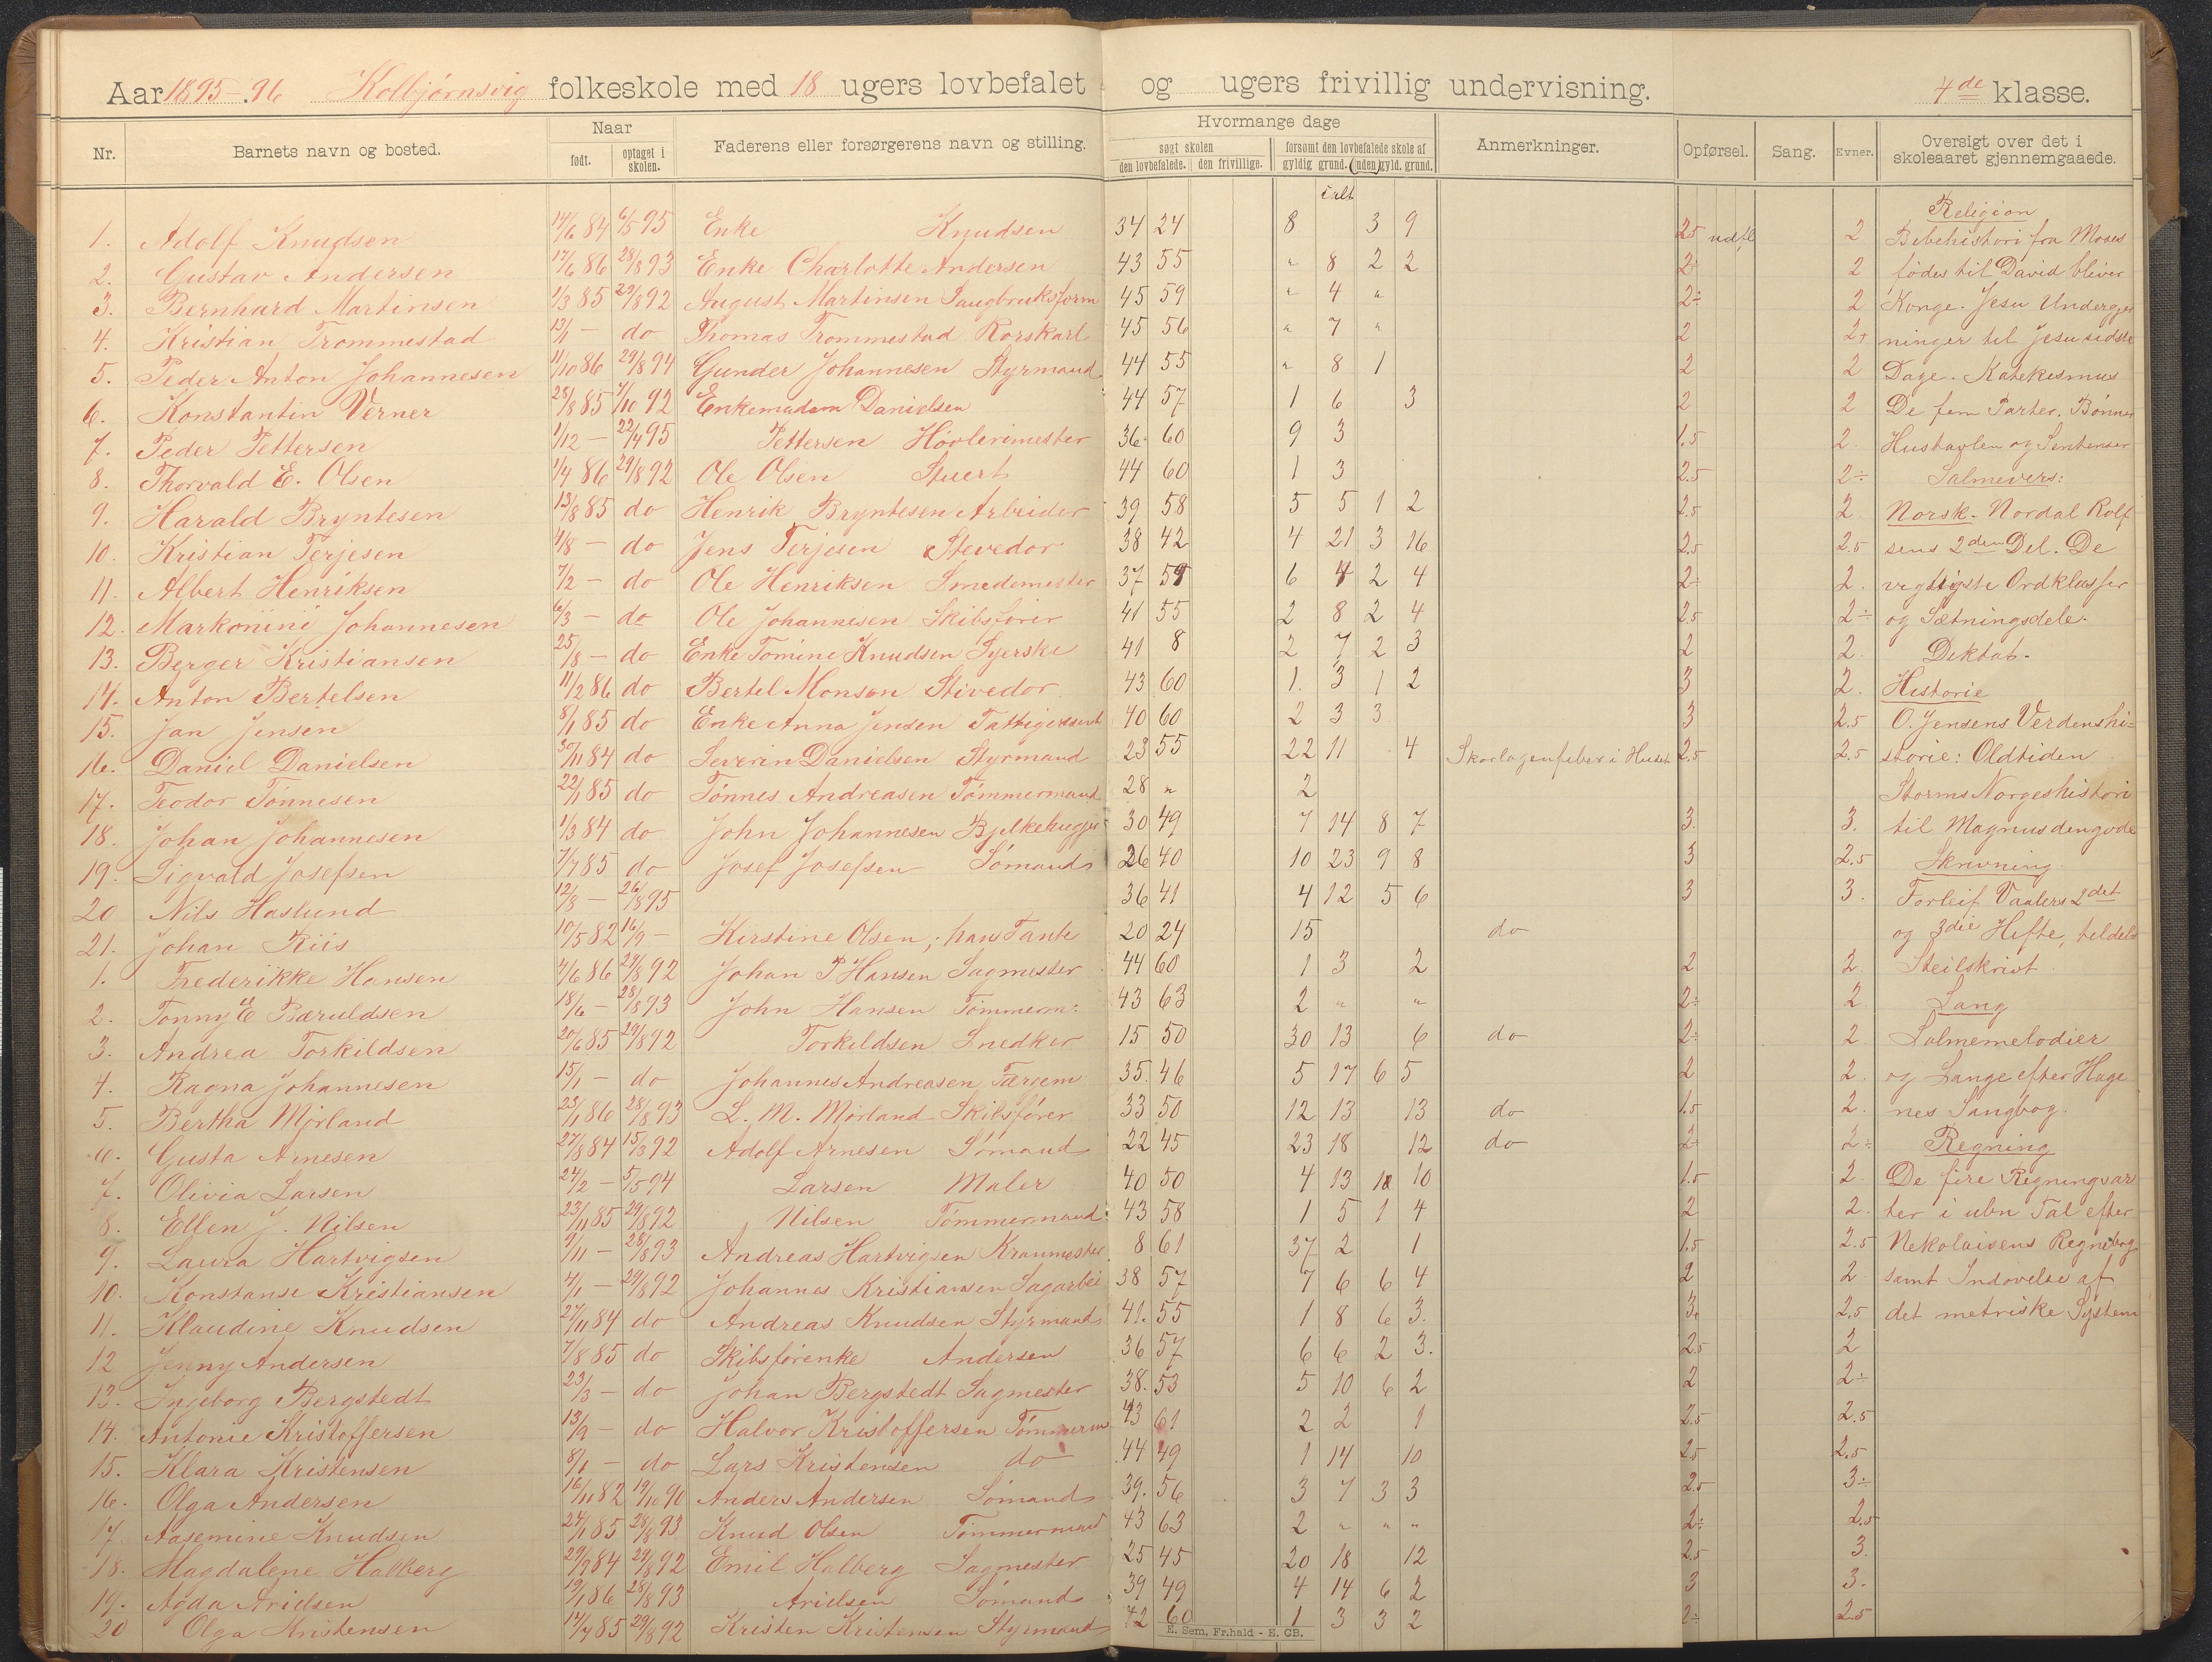 Aar 1895-96 Kolbjørnsvig folkeskole med 18 ugers lovbefalet og ugers frivillig undervisning. 4de klasse.
Nr. Barnets navn og bosted. Naar født. optaget i skolen. Faderens eller forsørgerens navn og stilling. Hvormange dage søgt skolen den lovbefalede. den frivillige. forsømt den lovbefalede skole af gyldig grund. (uden) gyld. grund. Anmerkninger. Opførsel. Sang. Evner. Oversigt over det i skoleaaret gjennemgaaede.
ialt
Religion
1. Adolf Knudsen 14/6 84 6/5 95 Enke Knudsen 34 24 8 3 9 2.5 udfl 2 Bibehistori fra Moses
2. Gustav Andersen 17/6 86 28/8 93 Enke Charlotte Andersen 43 55 " 8 2 2 2÷ 2 fødes til David bliver
3. Bernhard Martinsen 1/3 85 29/8 92 August Martinsen Saugbruksform 45 59 " 4 " 2÷ 2 Konge. Jesu Undergjer
4. Kristian Trommestad 13/1 — do Thomas Trommestad Rorskarl 45 56 " 7 " 2 2+ ninger til Jesu sidste
5. Peder Anton Johannesen 11/10 86 29/8 94 Gunder Johannesen Styrmand 44 55 " 8 1 2 2 Dage. Katekismus
6. Konstantin Verner 25/8 85 7/10 92 Enkemadam Danielsen 44 57 1 6 3 2 2 De fem Parter. Bønner
7. Peder Pettersen 1/12 — 22/4 95 Pettersen Høvlerimester 36 60 9 3 1.5 2. Hustavlen og Sentenser
8. Thorvald E. Olsen 1/4 86 29/8 92 Ole Olsen Stuert 44 60 1 3 2.5 2÷ Salmevers:
9. Harald Bryntesen 13/8 85 do Henrik Bryntesen Arbeider 39 58 5 5 1 2 2.5 2. Norsk. Nordal Rolf
10. Kristian Terjesen 4/8 — do Jens Terjesen Stevedor 38 42 4 21 3 16 2.5 2.5 sens 2den Del. De
11. Albert Henriksen 7/2 — do Ole Henriksen Smedemester 37 59 6 4 2 4 2÷ 2. vigtigste Ordklasser
12. Markonini Johannesen 6/3 — do Ole Johannesen Skibsfører 41 55 2 8 2 4 2.5 2÷ og Sætningsdele.
13. Berger Kristiansen 25/8 — do Enke Tomine Knudsen Syerske 41 8 2 7 2 3 2 2. Diktat.
14. Anton Bertelsen 11/2 86 do Bertel Monsen Stivedor 43 60 1. 3 1 2 3 2. Historie
15. Jan Jensen 8/1 85 do Enke Anna Jensen 40 60 2 3 3 3 2.5 O. Jensens Verdenshi-
16. Daniel Danielsen 30/11 84 do Severin Danielsen Styrmand 23 55 22 11 4 Skarlagensfeber i Huset 2.5 2.5 storie: Oldtiden
17. Teodor Tønnesen 22/1 85 do Tønnes Andreasen Tømmermand 28 " 2 Storms Norgeshistori
18. Johan Johannesen 1/3 84 do John Johannesen Bjelkehugger 30 49 7 14 8 7 3. 3. til Magnus den gode
19. Sigvald Josefsen 7/7 85 do Josef Josefsen Sømand 26 40 10 23 9 8 3 2.5 Skrivning.
20 Nils Haslund 12/8 — 26/8 95 36 41 4 12 5 6 3 3. Torleif Vaalers 2det
21. Johan Riis 10/5 82 16/9 — Kirstine Olsen, hans Tante 20 24 15 do og 3die Hefte, tildels
1. Frederikke Hansen 4/6 86 29/8 92 Johan P Hansen Sagmester 44 60 1 3 2 2 2. Steilskrift.
2. Tonny E Bæruldsen 18/6 — 28/8 93 John Hansen Tømmerm: 43 63 2 " " 2÷ 2. Sang
3. Andrea Torkildsen 20/6 85 29/8 92 Torkildsen Snedker 15 50 30 13 6 do 2÷ 2 Salmemelodier
4. Ragna Johannesen 15/1 — do Johannes Andreasen Færgem 35. 46 5 17 6 5 2 2. og Sange efter Hage
5. Bertha Mørland 23/1 86 28/8 93 L. M. Mørland Skibsfører 33 50 12 13 13 do 1.5 2. nes Sangbog.
6. Gusta Arnesen 27/8 84 15/3 92 Adolf Arnesen Sømand 22 45 23 18 12 do 2÷ 2÷ Regning
7. Olivia Larsen 24/2 — 5/5 94 Larsen Maler 40 50 4 13 10 1.5 2. De fire Regningsar
8. Ellen J. Nilsen 23/11 85 29/8 92 Nilsen Tømmermand 43 58 1 5 1 4 2 2. ter i ubn Tal efter
9. Laura Hartvigsen 9/11 — 28/8 93 Andreas Hartvigsen Kranmester 8 61 37 2 1 1.5 2.5 Nikolaisens Regnebog
10. Konstanse Kristiansen 4/1 — 29/8 92 Johannes Kristiansen Sagarbei 38 57 7 6 6 4 2 2 samt Indøvelse af
11. Klaudine Knudsen 27/11 84 do Andreas Knudsen Styrmand 41. 55 1 8 6 3. 3. 2.5 det metriske System
12 Jenny Andersen 7/8 85 do Skibsførenke Andersen 36 57 6 6 2 3. 2.5 2
13. Ingeborg Bergstedt 23/3 — do Johan Bergstedt Sagmester 38. 53 5 10 6 2 2 2÷
14. Antonie Kristoffersen 13/9 — do Halvor Kristoffersen Tømmerm 43 61 2 2 1 2.5 2.5
15. Klara Kristensen 8/1 — do Lars Kristensen do 44 49 1 14 10 2.5 2.5
16. Olga Andersen 16/11 82 19/10 90 Anders Andersen Sømand 39. 56 3 7 3 3 2.5 3÷
17. Aasemine Knudsen 24/1 85 28/8 93 Knud Olsen Tømmermand 43 63 2 " " " 2÷ 2.5
18. Magdalene Halberg 29/9 84 29/8 92 Emil Halberg Sagmester 25 45 20 18 12 2.5 3.
19. Agda Arielsen 19/1 86 28/8 93 Arielsen Sømand 39 49 4 14 6 2 3 3.
20 Olga Kristensen 14/7 85 29/8 92 Kristen Kristensen Styrmand 42 60 1 3 3 2 2÷ 2.5
E. Sem, Fr.hald - E. GB.